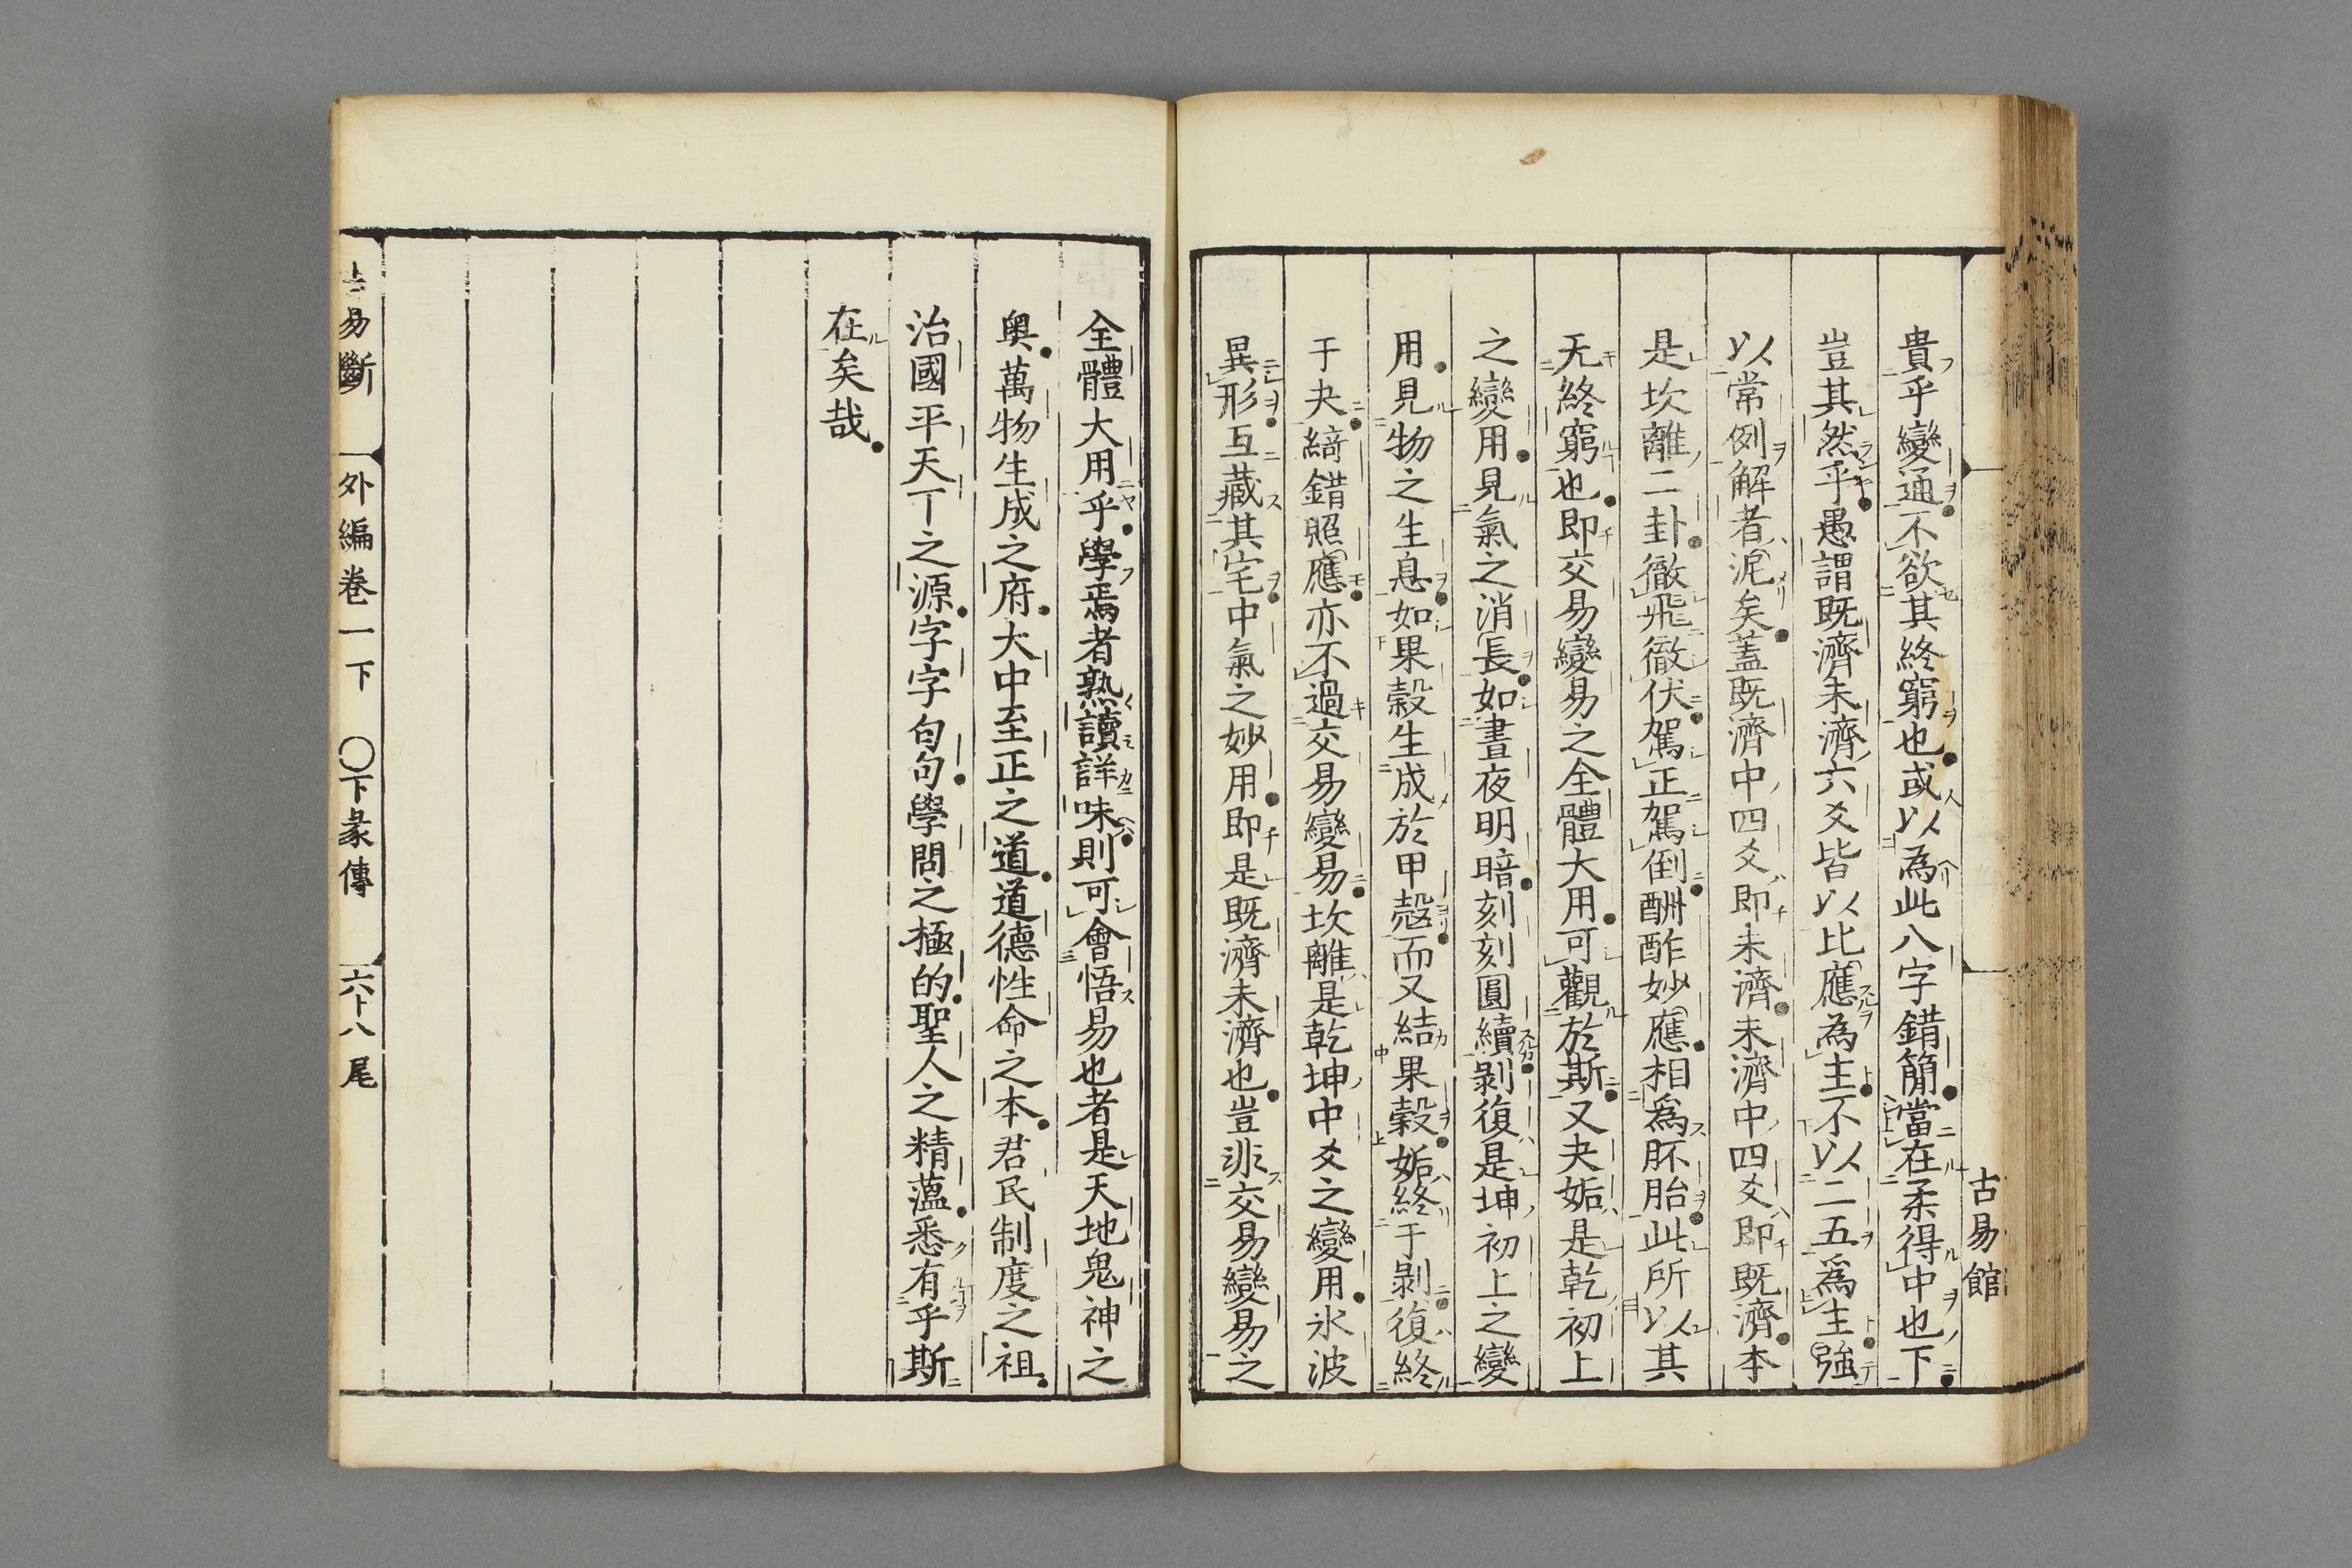 貴乎變通不欲其終窮也或以為此八字錯簡當在柔得中也下
豈其然乎愚謂既濟未濟六爻皆以比應為主不以二五爲主強
以常例解者泥矣蓋既濟中四爻即未濟未濟中四爻即既濟本
是坎離二卦徹飛徹伏駕正駕倒酬酢妙應相爲胚胎此所以其
无終窮也即交易變易之全體大用可觀於斯又夬姤是乾初上
之變用見氣之消長如晝夜明暗刻刻圓續剝復是坤初上之變
用見物之生息如果穀生成於甲殼而又結果穀姤終于剝復終
于夬綺錯照應亦不過交易變易坎離是乾坤中爻之變用氷波
異形互藏其宅中氣之妙用即是既濟未濟也豈非交易變易之
古易館
全體大用乎學焉者熟讀詳味則可會悟易也者是天地鬼神之
奥萬物生成之府大中至正之道道德性命之本君民制度之祖
治國平天下之源字字句句學問之極的聖人之精薀悉有乎斯
在矣哉
古易斷 外編卷一下 〇下彖傳 六十八尾